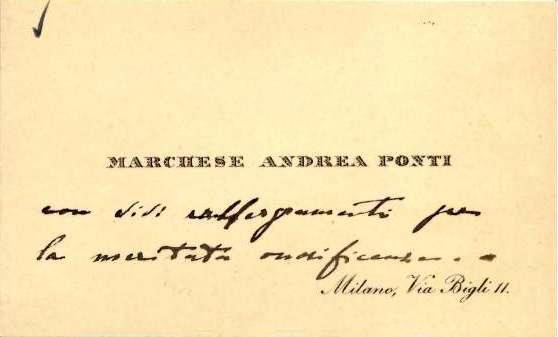 MARCHESE ANDREA PONTI
con vivi rallegramenti per
la meritata onorificenza.
Milano, Via Bigli 11.